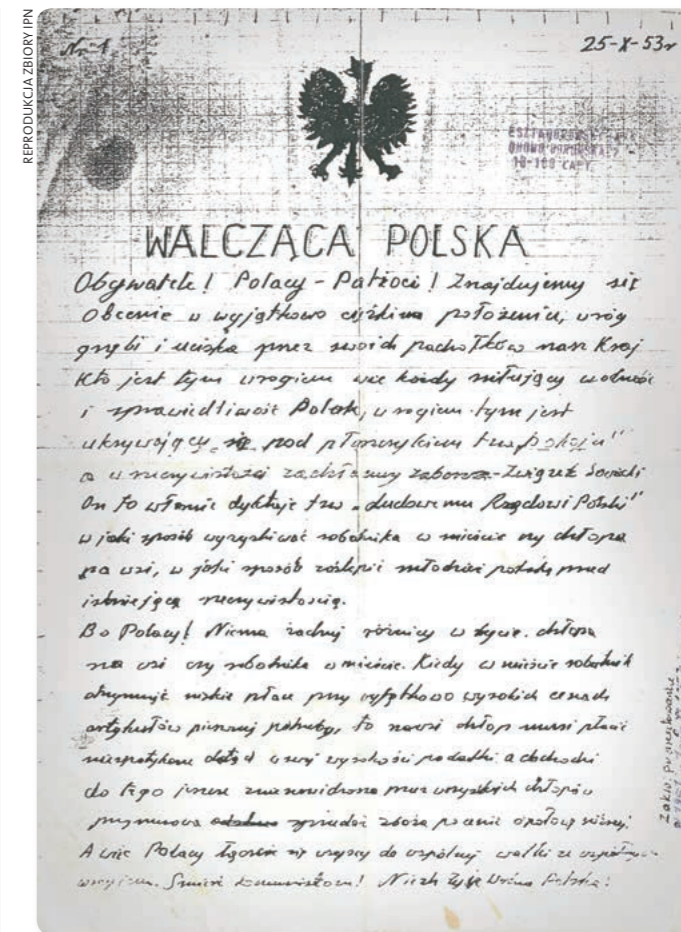 REPRODUKCJA ZBIORY IPN
Nr 1
25-X-53r
WALCZĄCA POLSKA
Obywatele! Polacy - Patrioci! Znajdujemy się
Obecnie w wyjątkowo ciężkim położeniu, wróg
gnębi i uciska przez swoich pachołków nasz Kraj
Kto jest tym wrogiem wie każdy miłujący wolność
i sprawiedliwość Polak, wrogiem tym jest
ukrywający się pod płaszczykiem tzw "pokoju"
a w rzeczywistości zachłanny zaborca - Związek Sowiecki
On to właśnie dyktuje tzw "Ludowemu Rządowi Polski"
w jaki sposób wyzyskiwać robotnika w mieście czy chłopa
na wsi, w jaki sposób zaślepić młodzież polską przed
istniejącą rzeczywistością.
Bo Polacy! Niema żadnej różnicy w życiu chłopa
na wsi czy robotnika w mieście. Kiedy w mieście robotnik
otrzymuje niskie płace przy wyjątkowo wysokich cenach
artykułów pierwszej potrzeby, to na wsi chłop musi płacić
niespotykane dotąd w swej wysokości podatki a dochodzi
do tego jeszcze znienawidzona przez wszystkich chłopów
przymusowa sprzedaż zboża po cenie o połowę niższej.
A więc Polacy łączmy się wszyscy do wspólnej walki ze wspólnym
wrogiem. Śmierć komunistom! Niech żyje Wolna Polska!